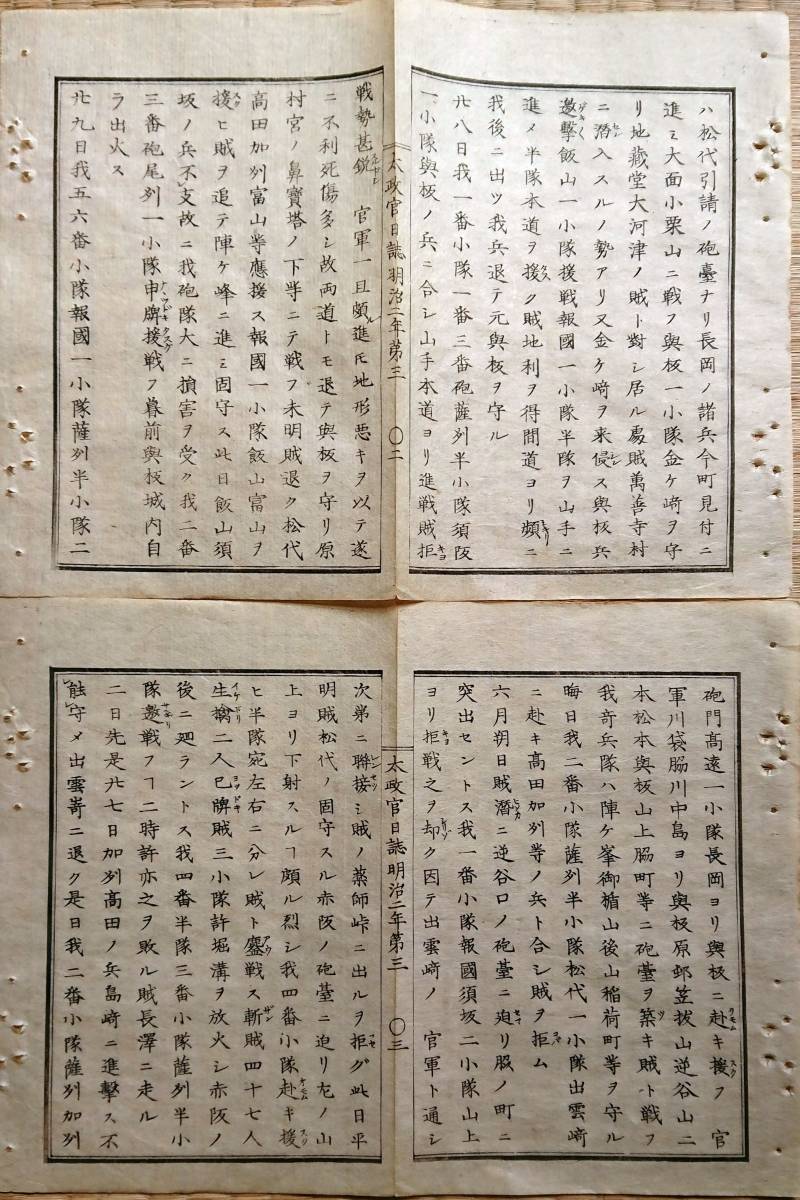 ハ松代引請ノ砲臺ナリ長岡ノ諸兵今町見付ニ
進ミ大面小栗山ニ戦フ與板一小隊金ケ﨑ヲ守
リ地藏堂大河津ノ賊ト對シ居ル處賊萬善寺村
ニ潜入スルノ勢アリ又金ケ﨑ヲ来侵ス與板兵
邀擊飯山一小隊援戦報國一小隊半隊ヲ山手ニ
進メ半隊本道ヲ援ク賊地利ヲ得間道ヨリ頻ニ
我後ニ出ツ我兵退テ元與板ヲ守ル
廿八日我一番小隊一番三番砲薩列半小隊須阪
一小隊與板ノ兵ニ合シ山手本道ヨリ進戦賊拒
太政官日誌明治二年第三 〇二
戦勢甚鋭 官軍一旦頗進モ地形悪キヲ以テ遂
ニ不利死傷多シ故両道トモ退テ與板ヲ守リ原
村宮ノ鼻寶塔ノ下等ニテ戦フ未明賊退ク松代
高田加列富山等應援ス報國一小隊飯山富山ヲ
援ヒ賊ヲ追テ陣ケ峰ニ進ミ固守ス此日飯山須
坂ノ兵不支故ニ我砲隊大ニ損害ヲ受ク我二番
三番砲尾列一小隊申牌援戦フ暮前與板城内自
ラ出火ス
廿九日我五六番小隊報國一小隊薩列半小隊二
砲門高遠一小隊長岡ヨリ與板ニ赴キ援フ 官
軍川袋脇川中島ヨリ與板原邨笠拔山逆谷山二
本松本與板山上脇町等ニ砲臺ヲ築キ賊ト戦フ
我竒兵隊ハ陣ケ峯御楯山後山稲荷町等ヲ守ル
晦日我二番小隊薩列半小隊松代一小隊出雲﨑
ニ赴キ高田加列等ノ兵ト合シ賊ヲ拒ム
六月朔日賊潛ニ逆谷口ノ砲臺ニ迫リ服ノ町ニ
突出セントス我一番小隊報國須坂二小隊山上
ヨリ拒戦之ヲ却ク因テ出雲﨑ノ 官軍ト通シ
太政官日誌明治二年第三 〇三
次第ニ聯接シ賊ノ薬師峠ニ出ルヲ拒グ此日平
明賊松代ノ固守スル赤阪ノ砲臺ニ迫リ左ノ山
上ヨリ下射スルヿ頗ル烈シ我四番小隊赴キ援
ヒ半隊宛左右ニ分レ賊ト鏖戦ス斬賊四十七人
生擒二人巳牌賊三小隊許堀溝ヲ放火シ赤阪ノ
後ニ廻ラントス我四番半隊三番小隊薩列半小
隊邀戦フヿ二時許亦之ヲ敗ル賊長澤ニ走ル
二日先是廿七日加列高田ノ兵島﨑ニ進擊ス不
能守メ出雲嵜ニ退ク是日我二番小隊薩列加列